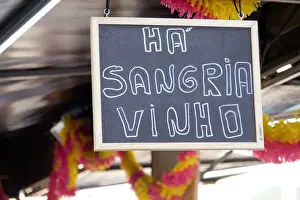 HÁ
SANGRIA
VINHO